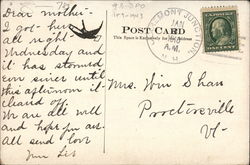 Dear mother-
I got here
all right
Wednesday and
it has stormed
ever since until
this afternoon it
cleared off.
We are all well
and hope you are.
All send love
POST CARD
This Space is Exclusively for the Address
FREMONT JUNCTION
JAN
A.M.
Mrs. Win Shaw
Proctorsville
Vt-